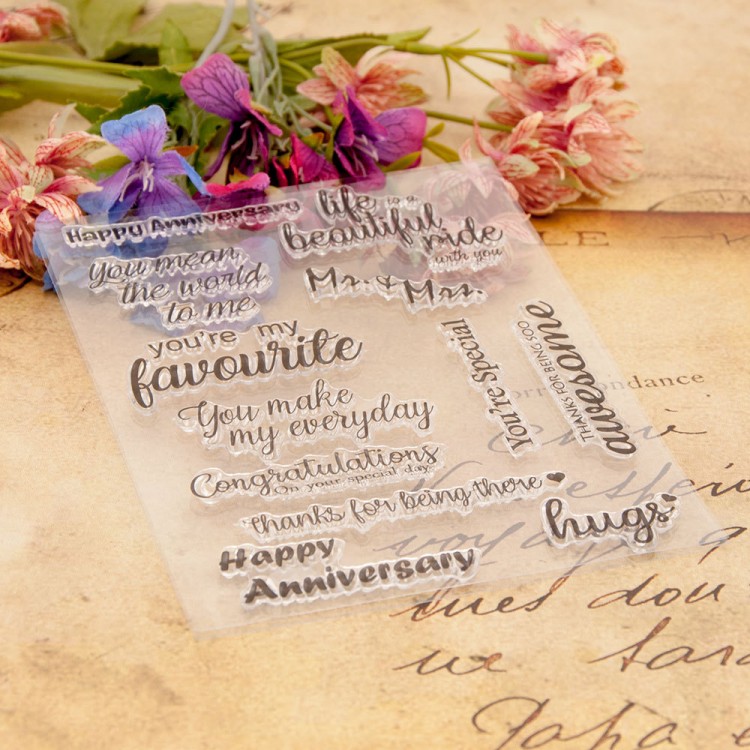 Happy Anniversary
life is a
beautiful ride
with you
You mean
the world
to me
Mr. & Mrs.
you're my
favourite
You're Special
THANKS FOR BEING SOO
awesome
You make
my everyday
Congratulations
On your special day
thanks for being there
hugs
Happy
Anniversary
ondance
dou
Papa